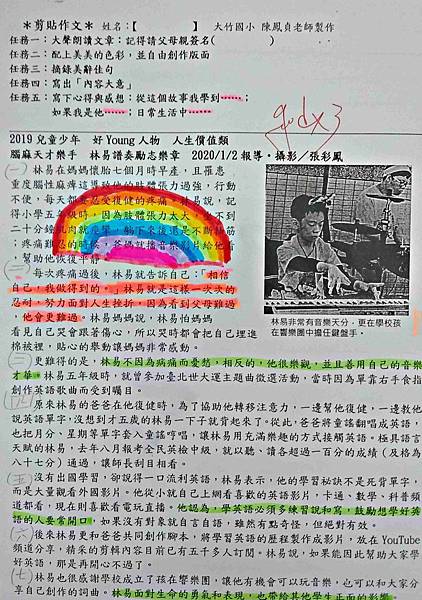 ＊剪貼作文＊ 姓名：【 】 大竹國小 陳鳳貞老師製作
任務一：大聲朗讀文章：記得請父母親簽名( )
任務二：配上美美的色彩，並自由創作版面
任務三：摘錄美辭佳句
任務四：寫出「內容大意」
任務五：寫下心得與感想：從這個故事我學到……；
如果我是他……；日常生活中……
good x3
2019兒童少年 好Young人物 人生價值類
腦麻天才樂手 林易譜奏勵志樂章 2020/1/2報導。攝影／張彩鳳
(一) 林易在媽媽懷胎七個月時早產，且罹患
重度腦性麻痺這導致他的肢體張力過強，行動
不便，每天都要忍受復健的疼痛。林易說，記
得小學五年級時，因為肢體張力太大，坐不到
二十分鐘肌肉就痙攣，躺下來後還是不斷抽筋
，疼痛難忍的時候，爸媽就播音樂影片給他看
，幫助他恢復平靜。
(二) 每次疼痛過後，林易就告訴自己：「相信
自己，我做得到的。」林易就是這樣一次次的
忍耐，努力面對人生挫折，因為看到父母難過
，他會更難過。林易媽媽說，林易怕媽媽
看見自己哭會跟著傷心，所以哭時都會把自己埋進
棉被裡，貼心的舉動讓媽媽非常感動。
林易非常有音樂天分，更在學校孩
在響樂團中擔任鍵盤手。
(三) 更難得的是，林易不因為病痛而憂愁，相反的，他很樂觀，並且善用自己的音樂
才華。林易五年級時，就曾參加臺北世大運主題曲徵選活動，當時因為單靠右手食指
創作英語歌曲而受到矚目。
(四) 原來林易的爸爸在他復健時，為了協助他轉移注意力，一邊幫他復健，一邊教他
說英語單字，沒想到才五歲的林易一下子就背起來了。從此，爸爸將童謠翻唱成英語，
也把月分、星期等單字套入童謠哼唱，讓林易用充滿樂趣的方式接觸英語。極具語言
天賦的林易，去年八月報考全民英檢中級，就以聽、讀各超過一百分的成績（及格為
八十七分）通過，讓師長刮目相看。
(五) 沒有出國學習，卻說得一口流利英語，林易表示，他的學習祕訣不是死背單字，
而是大量觀看外國影片。他從小就自己上網看喜歡的英語影片，卡通、數學、科普頻
道都看，現在則喜歡看電玩直播。他認為，學英語必須多練習說和寫，鼓勵想學好英
語的人要常開口，如果沒有對象就自言自語，雖然有點奇怪，但絕對有效。
(六) 後來林易更和爸爸共同創作腳本，將學習英語的歷程製作成影片，放在YouTube
頻道分享，精采的剪輯內容目前已有五千多人訂閱。林易說，如果能因此幫助大家學
好英語，那是再開心不過了。
(七) 林易也很感謝學校成立了孩在響樂團，讓他有機會可以玩音樂，也可以和大家分
享自己創作的詞曲。林易面對生命的勇氣和表現，也帶給其他學生正面的影響。